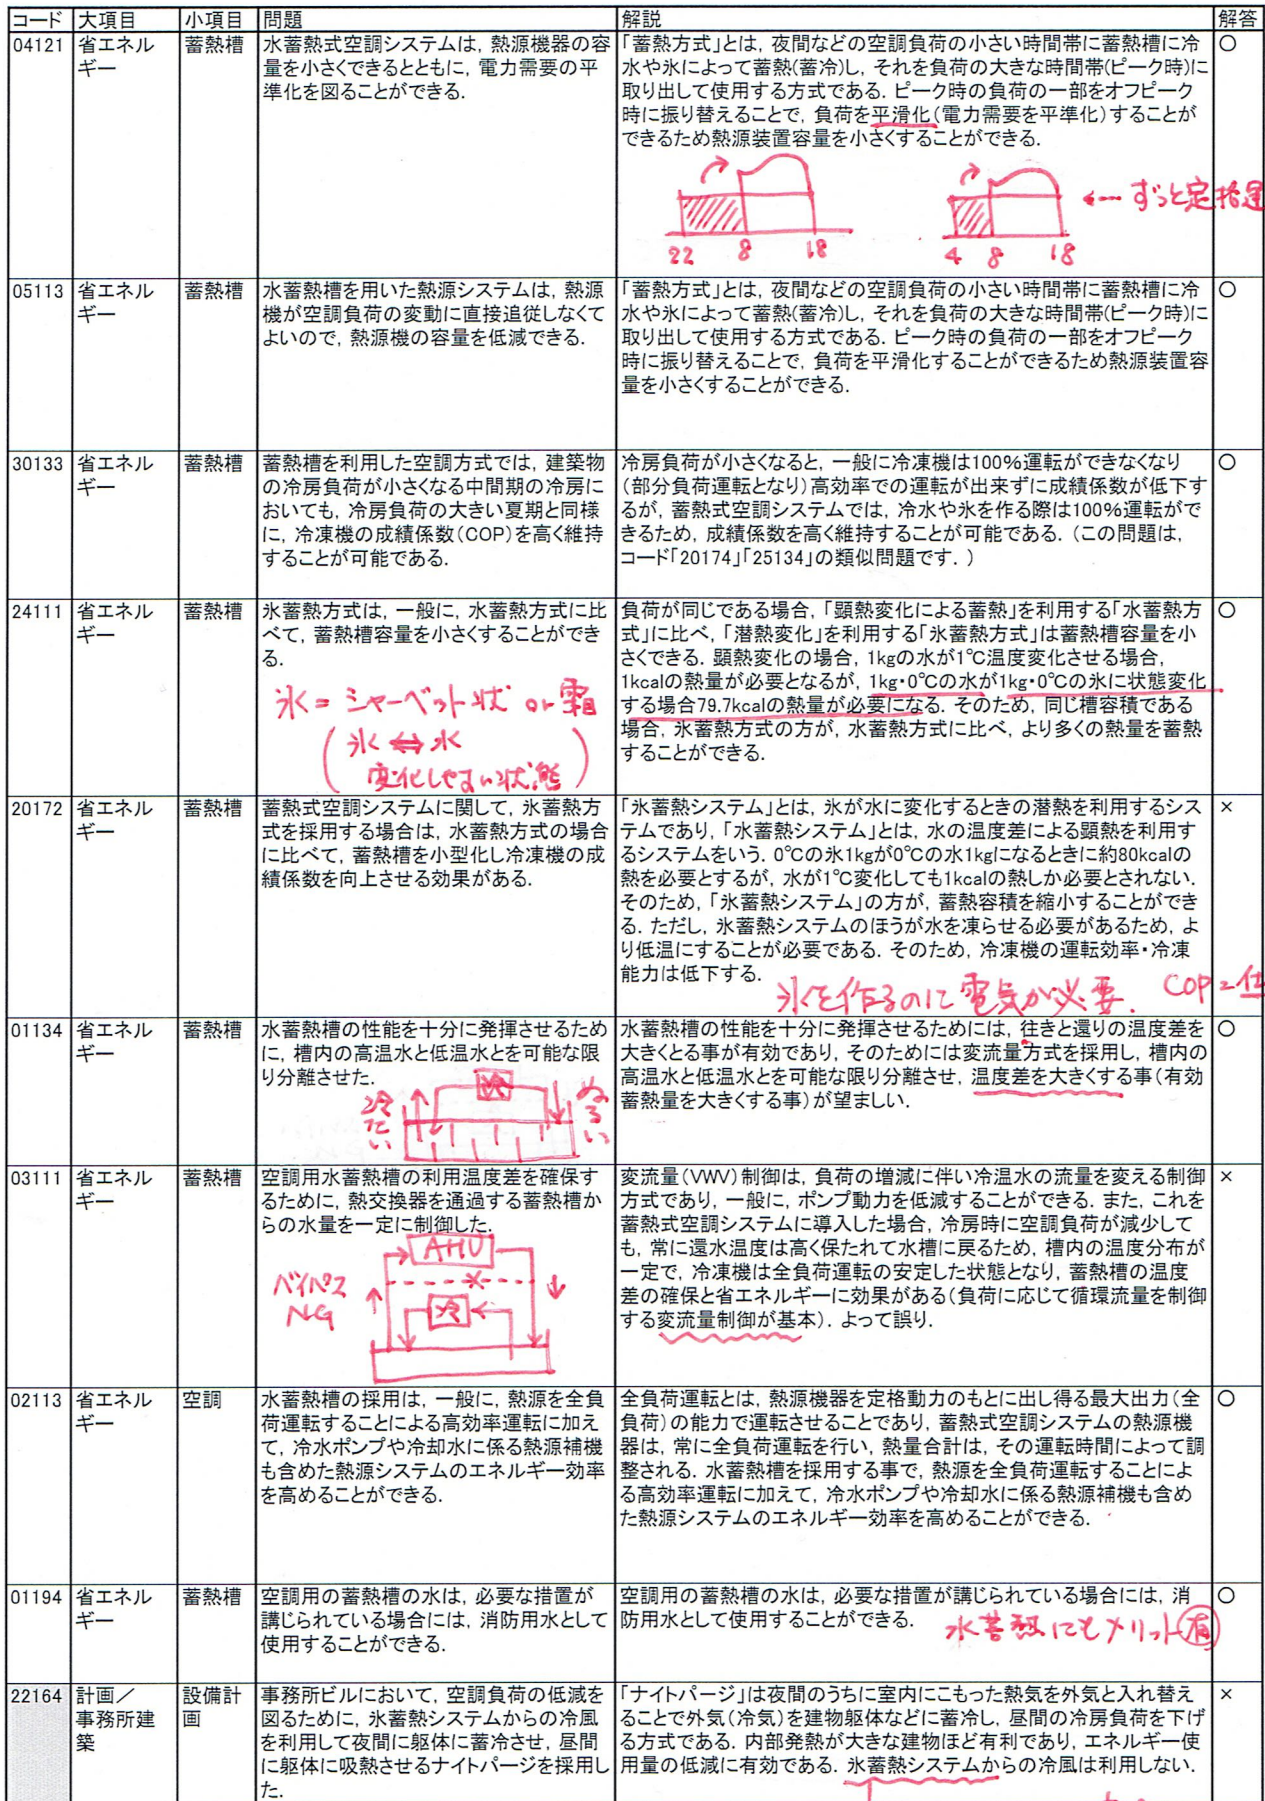 コード 大項目 小項目 問題 解説 解答
04121 省エネルギー 蓄熱槽
水蓄熱式空調システムは, 熱源機器の容
量を小さくできるとともに, 電力需要の平
準化を図ることができる.
「蓄熱方式」とは, 夜間などの空調負荷の小さい時間帯に蓄熱槽に冷
水や氷によって蓄熱(蓄冷)し, それを負荷の大きな時間帯(ピーク時)に
取り出して使用する方式である. ピーク時の負荷の一部をオフピーク
時に振り替えることで, 負荷を平滑化(電力需要を平準化)することが
できるため熱源装置容量を小さくすることができる.
○
22 8 18
4 8 18
ずっと定格運
05113 省エネルギー 蓄熱槽
水蓄熱槽を用いた熱源システムは, 熱源
機が空調負荷の変動に直接追従しなくて
よいので, 熱源機の容量を低減できる.
「蓄熱方式」とは, 夜間などの空調負荷の小さい時間帯に蓄熱槽に冷
水や氷によって蓄熱(蓄冷)し, それを負荷の大きな時間帯(ピーク時)に
取り出して使用する方式である. ピーク時の負荷の一部をオフピーク
時に振り替えることで, 負荷を平滑化することができるため熱源装置容
量を小さくすることができる.
○
30133 省エネルギー 蓄熱槽
蓄熱槽を利用した空調方式では, 建築物
の冷房負荷が小さくなる中間期の冷房に
おいても, 冷房負荷の大きい夏期と同様
に, 冷凍機の成績係数(COP)を高く維持
することが可能である.
冷房負荷が小さくなると, 一般に冷凍機は100%運転ができなくなり
(部分負荷運転となり)高効率での運転が出来ずに成績係数が低下す
るが, 蓄熱式空調システムでは, 冷水や氷を作る際は100%運転がで
きるため, 成績係数を高く維持することが可能である. (この問題は,
コード「20174」「25134」の類似問題です. )
○
24111 省エネルギー 蓄熱槽
氷蓄熱方式は, 一般に, 水蓄熱方式に比
べて, 蓄熱槽容量を小さくすることができ
る.
氷=シャーベット状 or 霜
(氷⇔水
変化しやすい状態)
負荷が同じである場合, 「顕熱変化による蓄熱」を利用する「水蓄熱方
式」に比べ, 「潜熱変化」を利用する「氷蓄熱方式」は蓄熱槽容量を小
さくできる. 顕熱変化の場合, 1kgの水が1℃温度変化させる場合,
1kcalの熱量が必要となるが, 1kg・0℃の水が1kg・0℃の氷に状態変化
する場合79.7kcalの熱量が必要になる. そのため, 同じ槽容積である
場合, 氷蓄熱方式の方が, 水蓄熱方式に比べ, より多くの熱量を蓄熱
することができる.
○
20172 省エネルギー 蓄熱槽
蓄熱式空調システムに関して, 氷蓄熱方
式を採用する場合は, 水蓄熱方式の場合
に比べて, 蓄熱槽を小型化し冷凍機の成
績係数を向上させる効果がある.
「氷蓄熱システム」とは, 氷が水に変化するときの潜熱を利用するシス
テムであり, 「水蓄熱システム」とは, 水の温度差による顕熱を利用す
るシステムをいう. 0℃の氷1kgが0℃の水1kgになるときに約80kcalの
熱を必要とするが, 水が1℃変化しても1kcalの熱しか必要とされない.
そのため, 「氷蓄熱システム」の方が, 蓄熱容積を縮小することができ
る. ただし, 氷蓄熱システムのほうが水を凍らせる必要があるため, よ
り低温にすることが必要である. そのため, 冷凍機の運転効率・冷凍
能力は低下する.
×
氷を作るのに電気が必要. COP=低
01134 省エネルギー 蓄熱槽
水蓄熱槽の性能を十分に発揮させるため
に, 槽内の高温水と低温水とを可能な限
り分離させた.
冷たい 冷 ぬるい
水蓄熱槽の性能を十分に発揮させるためには, 往きと還りの温度差を
大きくとる事が有効であり, そのためには変流量方式を採用し, 槽内の
高温水と低温水とを可能な限り分離させ, 温度差を大きくする事(有効
蓄熱量を大きくする事)が望ましい.
○
03111 省エネルギー 蓄熱槽
空調用水蓄熱槽の利用温度差を確保す
るために, 熱交換器を通過する蓄熱槽か
らの水量を一定に制御した.
AHU
バイパス
NG
冷
変流量(VWV)制御は, 負荷の増減に伴い冷温水の流量を変える制御
方式であり, 一般に, ポンプ動力を低減することができる. また, これを
蓄熱式空調システムに導入した場合, 冷房時に空調負荷が減少して
も, 常に還水温度は高く保たれて水槽に戻るため, 槽内の温度分布が
一定で, 冷凍機は全負荷運転の安定した状態となり, 蓄熱槽の温度
差の確保と省エネルギーに効果がある(負荷に応じて循環流量を制御
する変流量制御が基本). よって誤り.
×
02113 省エネルギー 空調
水蓄熱槽の採用は, 一般に, 熱源を全負
荷運転することによる高効率運転に加え
て, 冷水ポンプや冷却水に係る熱源補機
も含めた熱源システムのエネルギー効率
を高めることができる.
全負荷運転とは, 熱源機器を定格動力のもとに出し得る最大出力(全
負荷)の能力で運転させることであり, 蓄熱式空調システムの熱源機
器は, 常に全負荷運転を行い, 熱量合計は, その運転時間によって調
整される. 水蓄熱槽を採用する事で, 熱源を全負荷運転することによ
る高効率運転に加えて, 冷水ポンプや冷却水に係る熱源補機も含め
た熱源システムのエネルギー効率を高めることができる.
○
01194 省エネルギー 蓄熱槽
空調用の蓄熱槽の水は, 必要な措置が
講じられている場合には, 消防用水として
使用することができる.
空調用の蓄熱槽の水は, 必要な措置が講じられている場合には, 消
防用水として使用することができる.
○
水蓄熱にもメリット有
22164 計画/事務所建築 設備計画
事務所ビルにおいて, 空調負荷の低減を
図るために, 氷蓄熱システムからの冷風
を利用して夜間に躯体に蓄冷させ, 昼間
に躯体に吸熱させるナイトパージを採用し
た.
「ナイトパージ」は夜間のうちに室内にこもった熱気を外気と入れ替え
ることで外気(冷気)を建物躯体などに蓄冷し, 昼間の冷房負荷を下げ
る方式である. 内部発熱が大きな建物ほど有利であり, エネルギー使
用量の低減に有効である. 氷蓄熱システムからの冷風は利用しない.
×